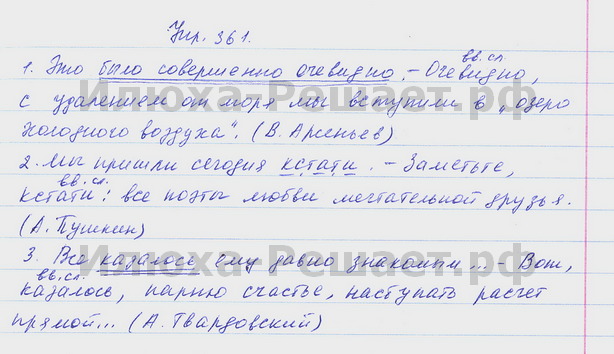 Упр. 361.
вв. сл.
1. Это было совершенно очевидно. – Очевидно,
с удалением от моря мы вступили в „озеро
холодного воздуха“. (В. Арсеньев)
2. Мы пришли сегодня кстати. – Заметьте,
вв. сл.
кстати: все поэты любви мечтательной друзья.
(А. Пушкин)
3. Все казалось ему давно знакомым... – Вот,
вв. сл.
казалось, парню счастье, наступать расчет
прямой... (А. Твардовский)
Илюха-Решает.рф
Илюха-Решает.рф